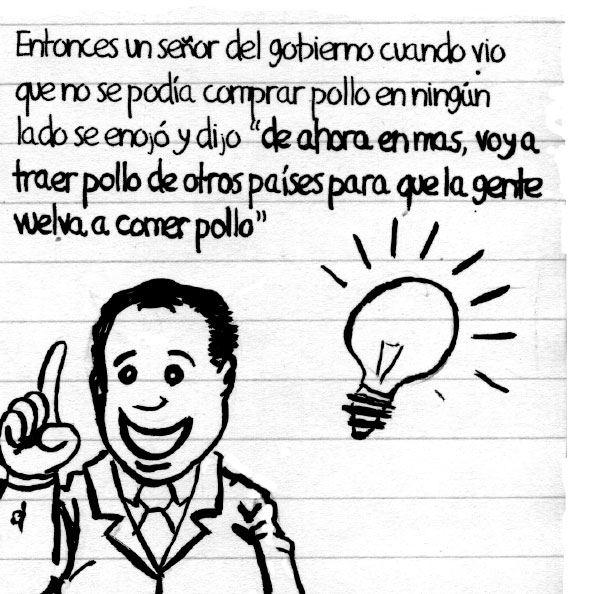 Entonces un señor del gobierno cuando vio
que no se podía comprar pollo en ningún
lado se enojó y dijo "de ahora en mas, voy a
traer pollo de otros países para que la gente
vuelva a comer pollo"